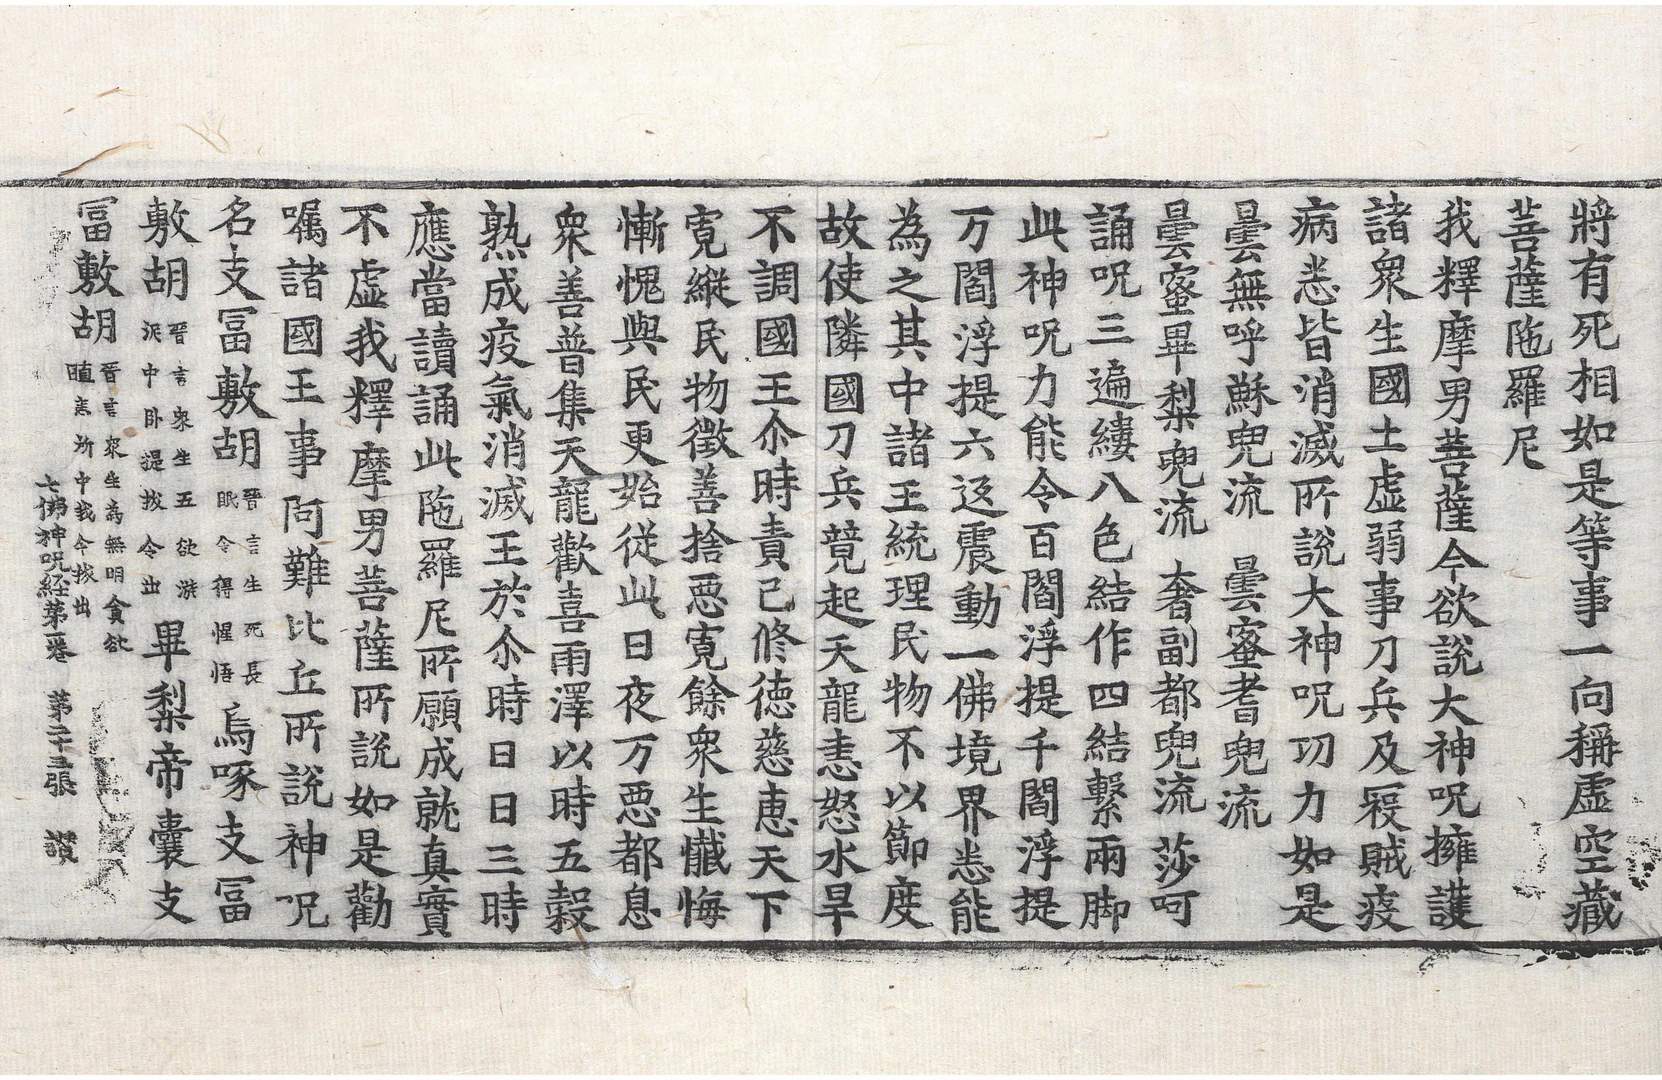 將有死相如是等事一向稱虛空藏
菩薩陁羅尼
我釋摩男菩薩今欲說大神呪擁護
諸衆生國土虛弱事刀兵及穀賊疫
病悉皆消滅所說大神呪功力如是
曇無呼穌兜流　曇蜜耆兜流
曇蜜畢梨兜流　奢副都兜流　莎呵
誦呪三遍縷八色結作四結繫兩脚
此神呪力能令百閻浮提千閻浮提
万閻浮提六返震動一佛境界悉能
為之其中諸王統理民物不以節度
故使隣國刀兵競起天龍恚怒水旱
不調國王尒時責己修德慈惠天下
寬縱民物徵善捨惡寬餘衆生懺悔
慚愧與民更始從此日夜万惡都息
衆善普集天龍歡喜雨澤以時五穀
熟成疫氣消滅王於尒時日日三時
應當讀誦此陁羅尼所願成就真實
不虛我釋摩男菩薩所說如是勸
囑諸國王事阿難比丘所說神呪
名支冨敷胡晉言生死長眠令得惺悟烏啄支冨
敷胡晉言衆生五欲淤泥中卧提拔令出畢梨帝囊支
冨敷胡晉言衆生為無明貪欲所中我今拔出
七佛神呪經第一卷　第二十三張　讚